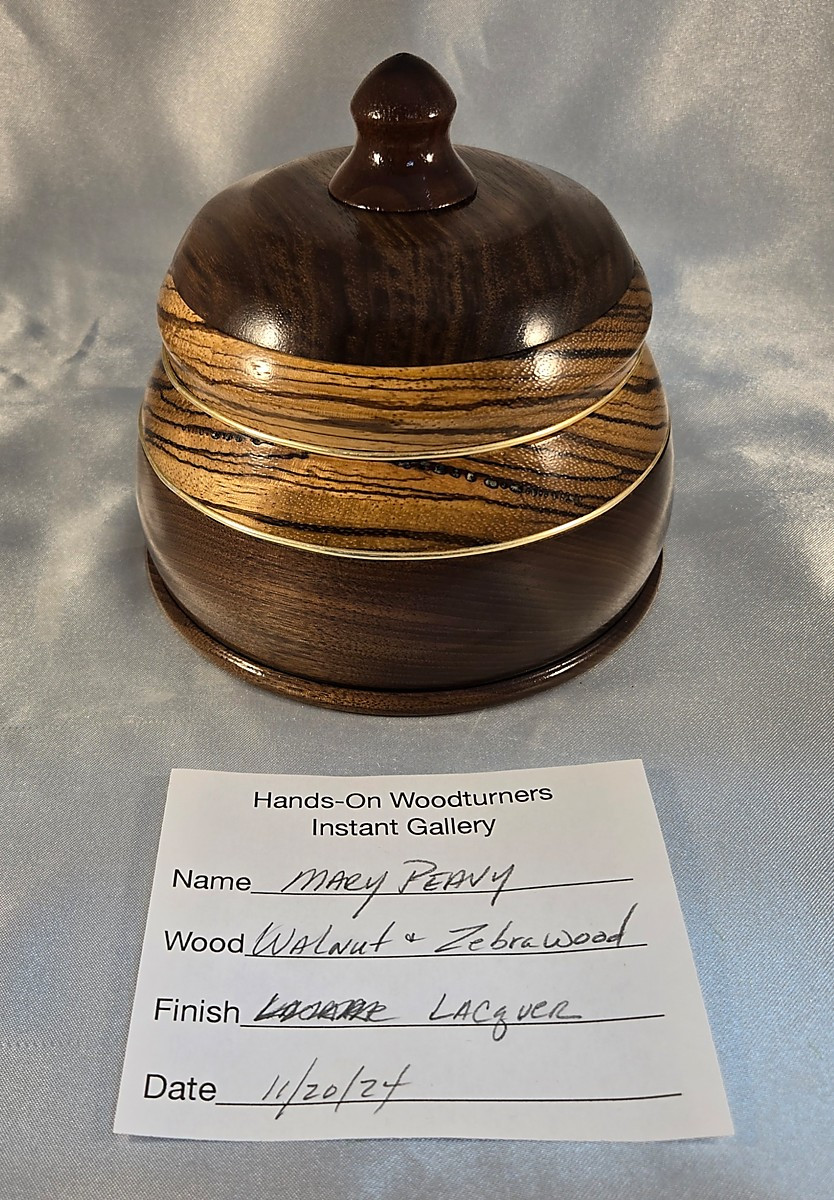 Hands-On Woodturners
Instant Gallery
Name MARY PEAVY
Wood Walnut & Zebrawood
Finish LACQUER
Date 11/20/24